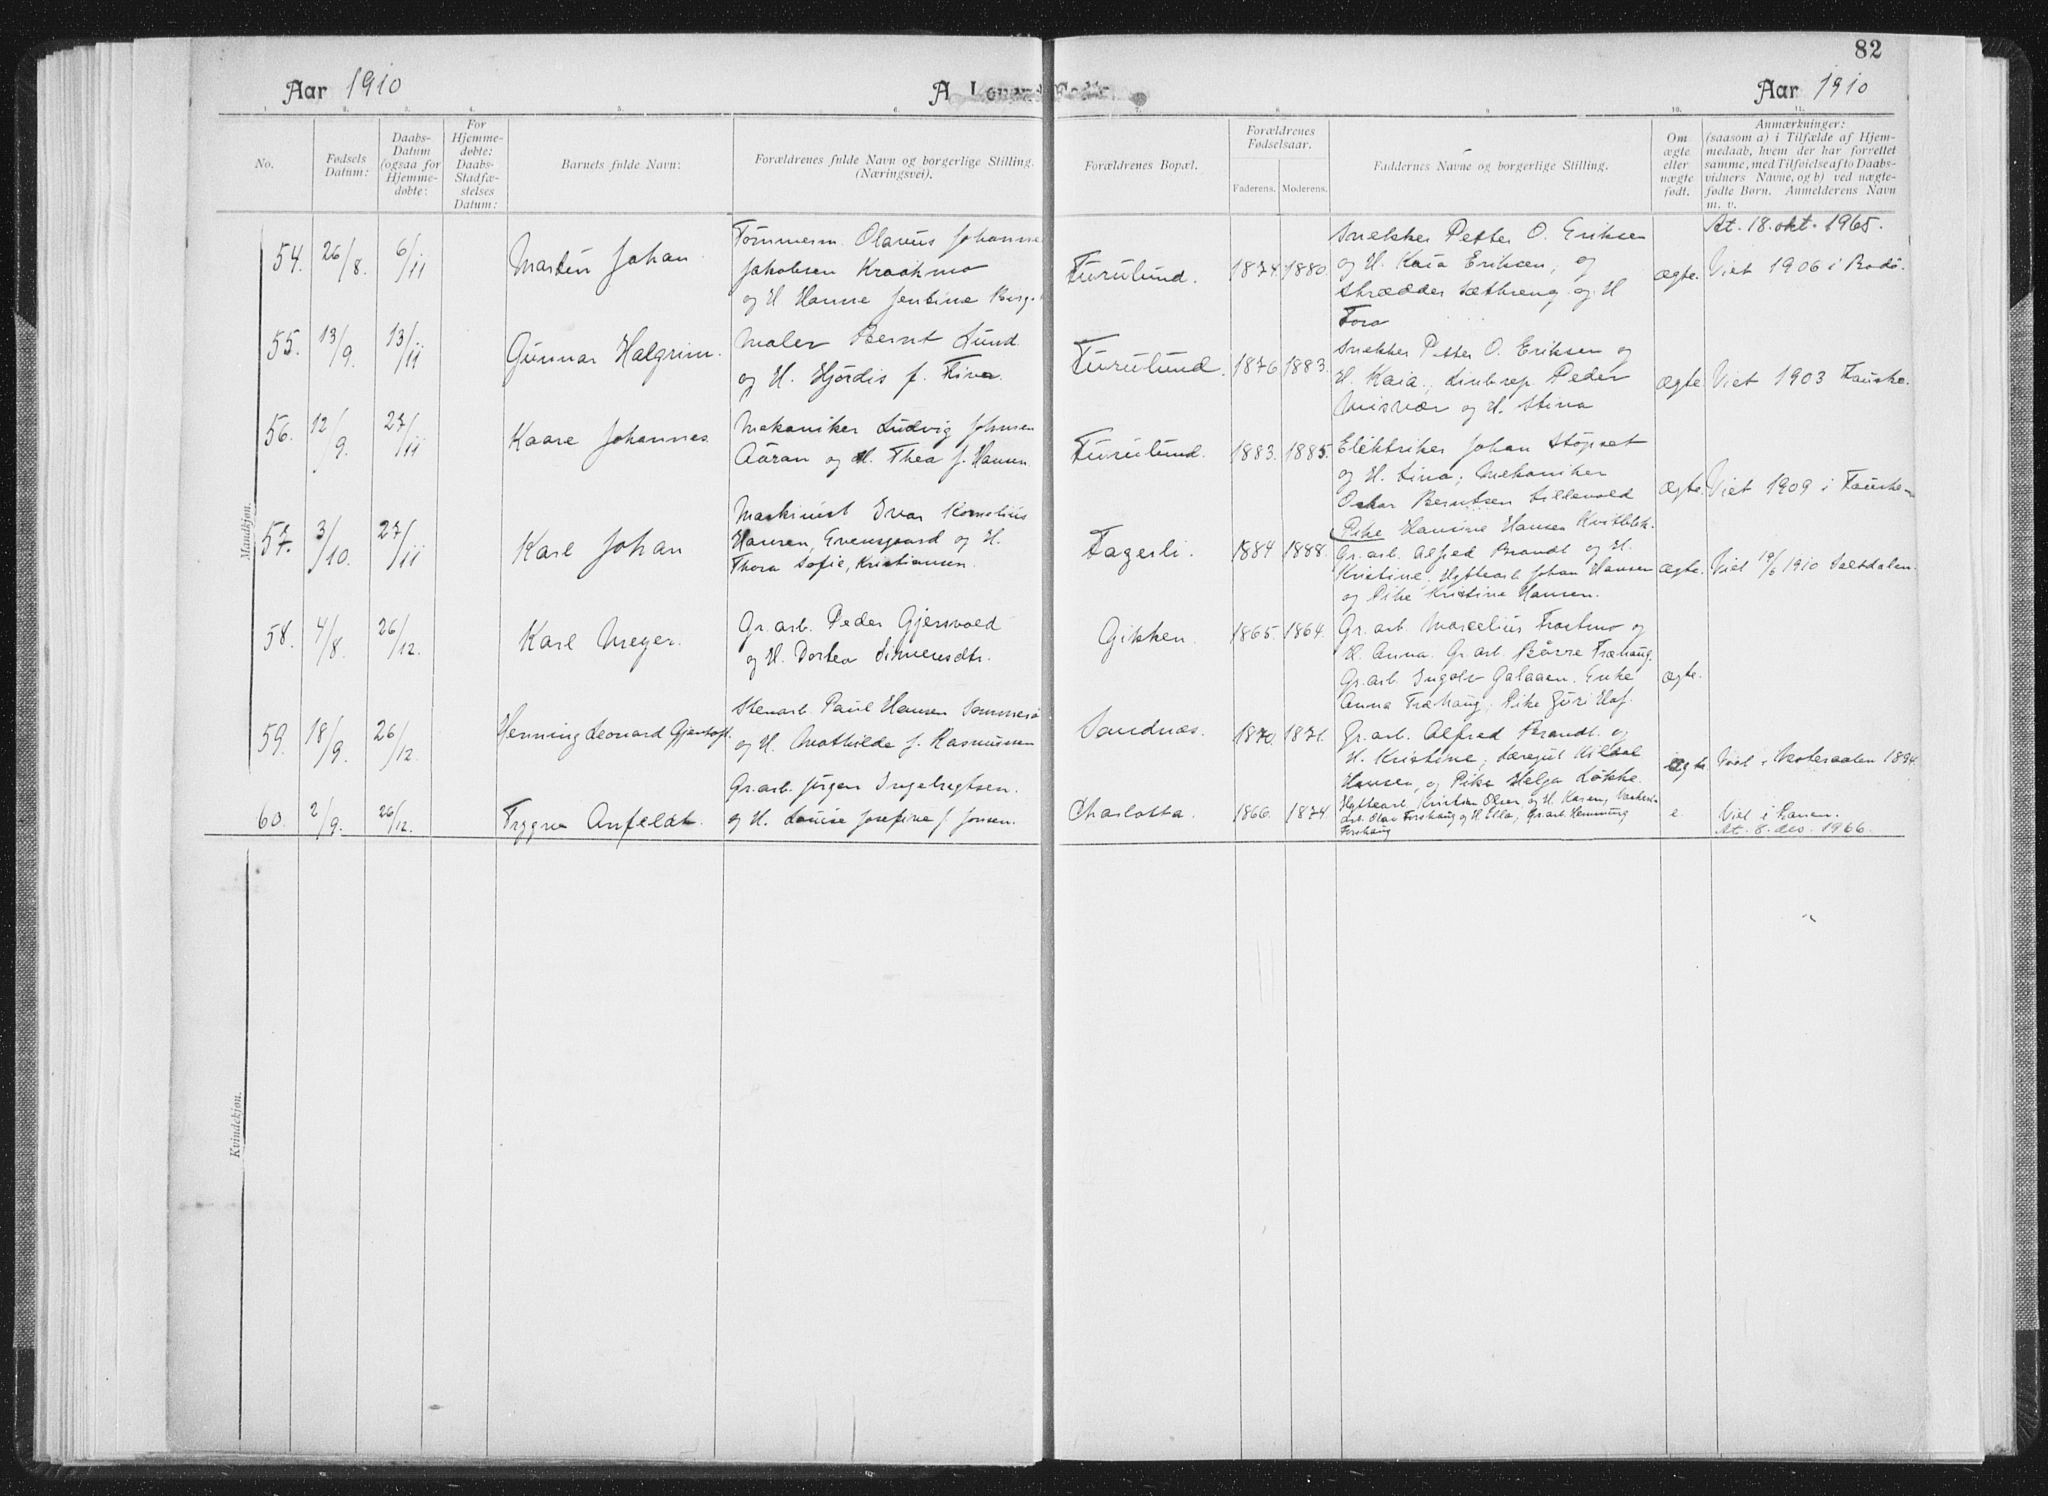 82
Aar 1910
A. Levende Fødte.
Aar 1910
1. 2. 3. 4. 5. 6. 7. 8. 9. 10. 11.
No.
Fødsels
Datum:
Daabs-
Datum
(ogsaa for
Hjemme-
døbte:
For
Hjemme-
døbte:
Daabs-
Stadfæ-
stelses
Datum:
Barnets fulde Navn:
Forældrenes fulde Navn og borgerlige Stilling.
(Næringsvei).
Forældrenes Bopæl.
Forældrenes
Fødselsaar.
Faderens. Moderens.
Faddernes Navne og borgerlige Stilling.
Om
ægte
eller
nægte
født.
Anmærkninger:
(saasom a) i Tilfælde af Hjem-
medaab, hvem der har forrettet
samme, med Tilføielse af to Daabs-
vidners Navne, og b) ved nægte-
fødte Børn. Anmelderens Navn
m. v.
Mandkjøn.
54. 26/8. 6/11 Martin Johan
Tømmerm. Olavus Johannes
Jakobsen Kraakmo
og H. Hanne Jentine Berg
Furulund. 1874. 1880.
Snekker Petter O. Eriksen
og H. Kaia Eriksen, og
Skrædder Sætreng og H
Tora
ægte.
At. 18. okt. 1965.
Viet 1906 i Bodø.
55. 13/9. 13/11 Gunnar Halgrim.
Maler Bernt Lund
og H. Hjørdis f.
Furulund. 1876 1883.
Snekker Petter O. Eriksen og
H. Kaia, Peder
Misvær og H. Stina
ægte. Viet 1903 Fauske.
56. 12/9. 27/11 Kaare Johannes
Mekaniker Ludvig Johnsen
og H. Thea f. Hansen
Furulund. 1883. 1885.
Elektriker Johan Støpset
og H. Lina, Mekaniker
Oskar Berntsen Lillevold
Pike Hansine Hansen Kvitblik.
ægte. Viet 1909 i Fauske
57. 3/10. 27/11 Karl Johan
Maskinist Ivar Kornelius
Hansen, Evensgaard og H.
Thora Sofie, Kristiansen.
Fagerli. 1884 1888.
Gr. arb. Alfred Brandt og H.
Kristine, Hyttearb Johan Hansen
og Pike Kristine Hansen.
ægte. Viet 19/6 1910 Saltdalen.
58. 4/8. 26/12. Karl Meyer.
Gr. arb. Peder Gjersvold
og H. Dortea Simensdtr.
Gikken. 1865. 1864.
Gr. arb. Marcelius Trostmo og
H. Anna. Gr. arb. Børre Træhaug.
Gr. arb. Ingolv Galaaen. Enke
Anna Træhaug, Pike Guri Hof.
ægte.
59. 18/9. 26/12. Henning Leonard Gjentoft.
Stenarb. Paul Hansen
og H. Mathilde f. Rasmussen
Sandnæs. 1870. 1871.
Gr. arb. Alfred Brandt og
H. Kristine,
Hansen, og Pike Helga Løkke.
ægte 1894.
60. 2/9. 26/12. Trygve Anfeldt.
Gr. arb. Jørgen Ingebrigtsen.
og H. Louise Josefine f. Jensen.
Charlotta. 1866. 1874.
Hyttearb Kristian Olsen og H. Karen,
arb. Olav Forshaug og H Ella, Gr. arb. Hemming
Forshaug
e. Viet i Ranen.
At. 8. des. 1966.
Kvindekjøn.